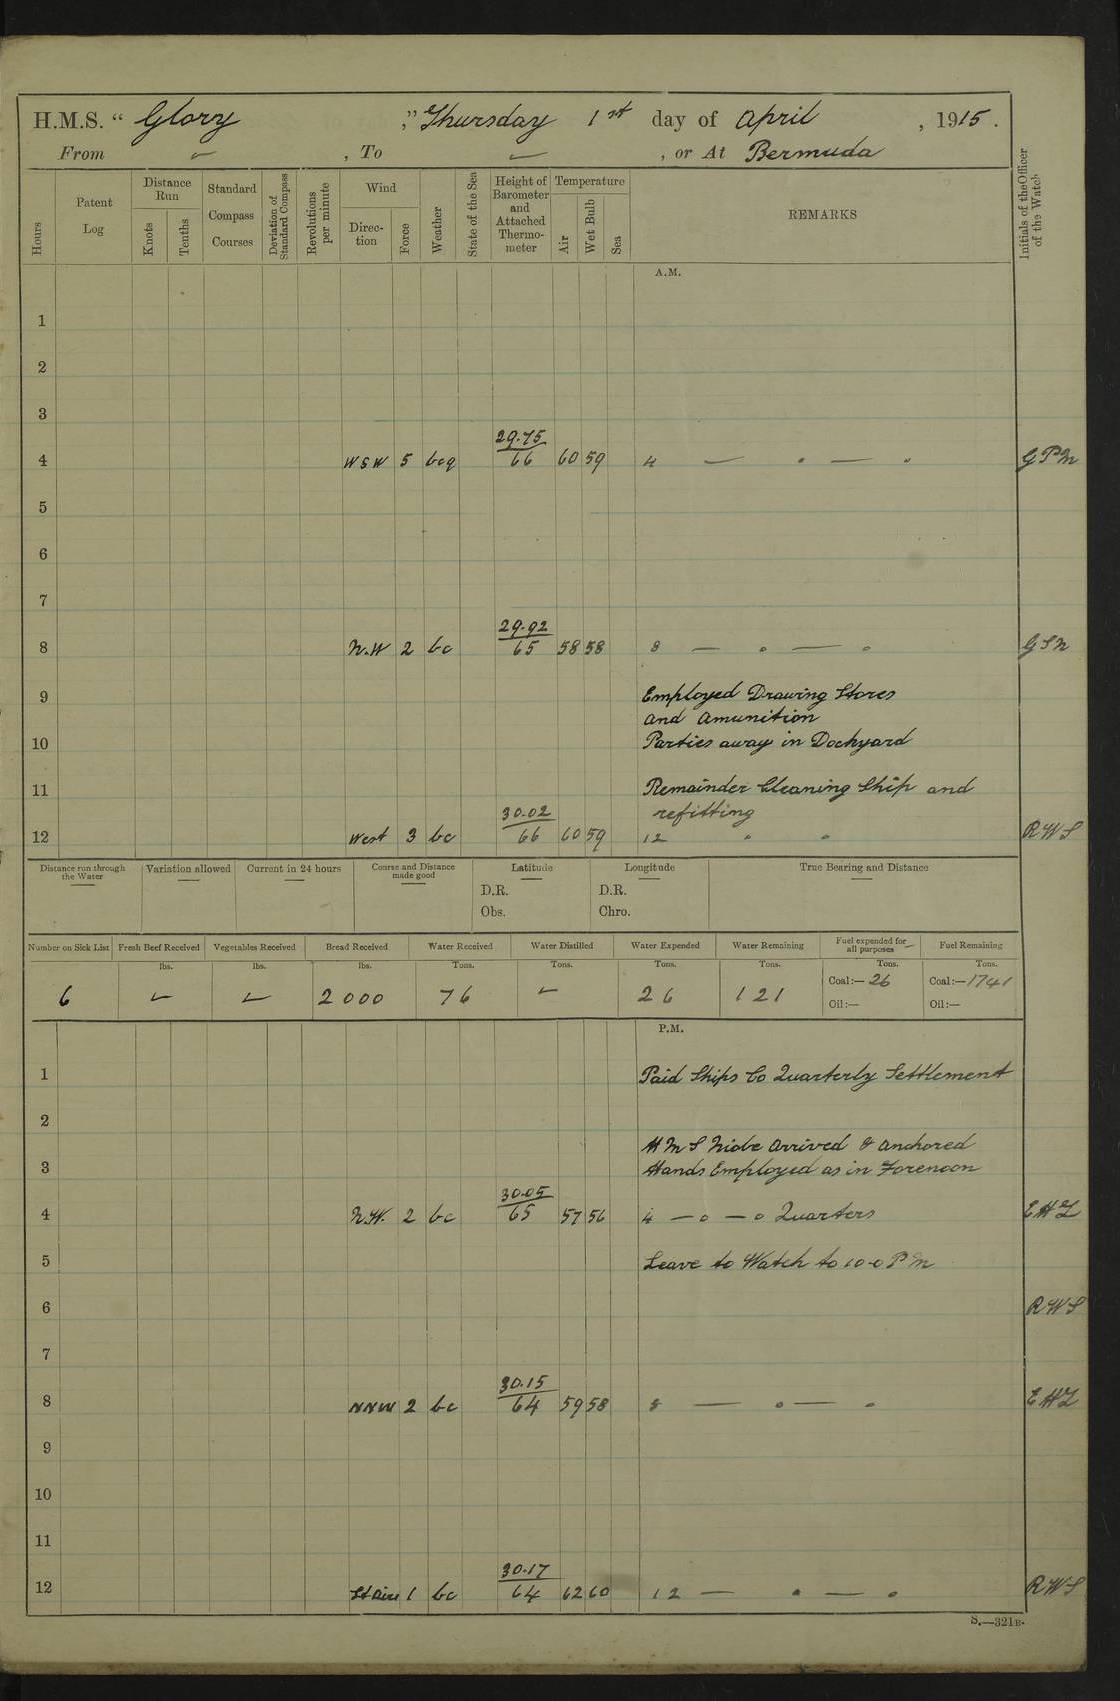 H.M.S. “ Glory ,” Thursday 1st day of April , 1915 .
From ✓ , To ✓ , or At Bermuda
Hours
Patent Log
Distance Run
Knots
Tenths
Standard Compass Courses
Deviation of Standard Compass
Revolutions per minute
Wind
Direction
Force
Weather
State of the Sea
Height of Barometer and Attached Thermometer
Temperature
Air
Wet Bulb
Sea
REMARKS
Initials of the Officer of the Watch
A.M.
1
2
3
29.75
4 WSW 5 bcq 66 60 59 4 — • — • G P M
5
6
7
29.92
8 N.W 2 bc 65 58 58 8 — • — • G S N
9 Employed Drawing Stores
and Amunition
10 Parties away in Dockyard
11 Remainder Cleaning Ship and
30.02 refitting
12 West 3 bc 66 60 59 12 • • R W S
Distance run through the Water
Variation allowed
Current in 24 hours
Course and Distance made good
Latitude
D.R.
Obs.
Longitude
D.R.
Chro.
True Bearing and Distance
Number on Sick List Fresh Beef Received Vegetables Received Bread Received Water Received Water Distilled Water Expended Water Remaining Fuel expended for all purposes Fuel Remaining
lbs. lbs. lbs. Tons. Tons. Tons. Tons. Tons. Tons.
6 ✓ ✓ 2000 76 ✓ 26 121 Coal:— 26 Coal:— 1741
Oil:— Oil:—
P.M.
1 Paid Ships Co Quarterly Settlement
2
H M S Niobe Arrived & anchored
3 Hands Employed as in Forenoon
30.05
4 N.W. 2 bc 65 57 56 4 — o — o Quarters
5 Leave to Watch to 10-0 P M
6 R W S
7
30.15
8 NNW 2 bc 64 59 58 8 — o — o
9
10
11
30.17
12 1 bc 64 62 60 12 — • — o R W S
S.—321B.